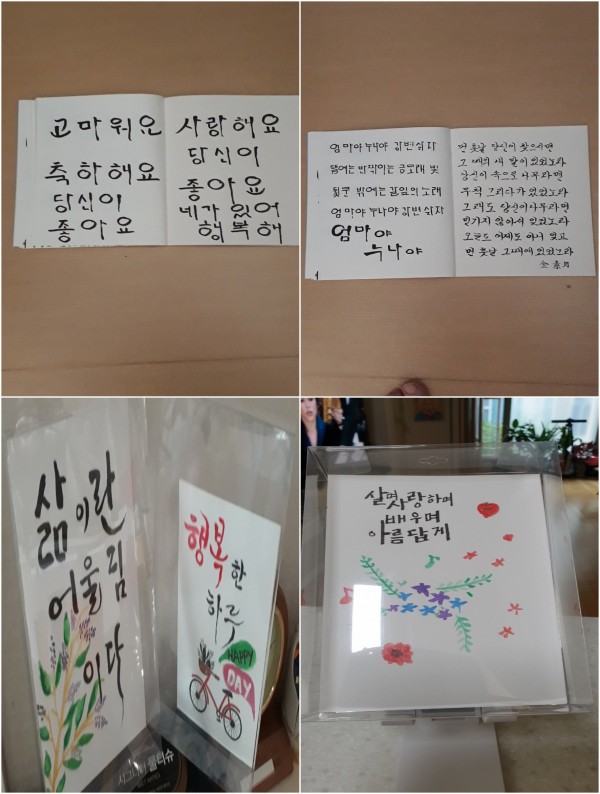 고마워요
축하해요
당신이
좋아요
사랑해요
당신이
좋아요
네가 있어
행복해
엄마야 누나야 강변살자
뜰에는 반짝이는 금모래 빛
뒷문 밖에는 갈잎의 노래
엄마야 누나야 강변살자
엄마야
누나야
먼 훗날 당신이 찾으시면
그 때의 내 말이 잊었노라
당신이 속으로 나무라면
무척 그리다가 잊었노라
그래도 당신이 나무라면
믿기지 않아서 잊었노라
오늘도 어제도 아니 잊고
먼 훗날 그때에 잊었노라
삶이란
어울림
이다
행복한
하루
HAPPY
DAY
시그니처 물티슈
살며 사랑하며
배우며
아름답게